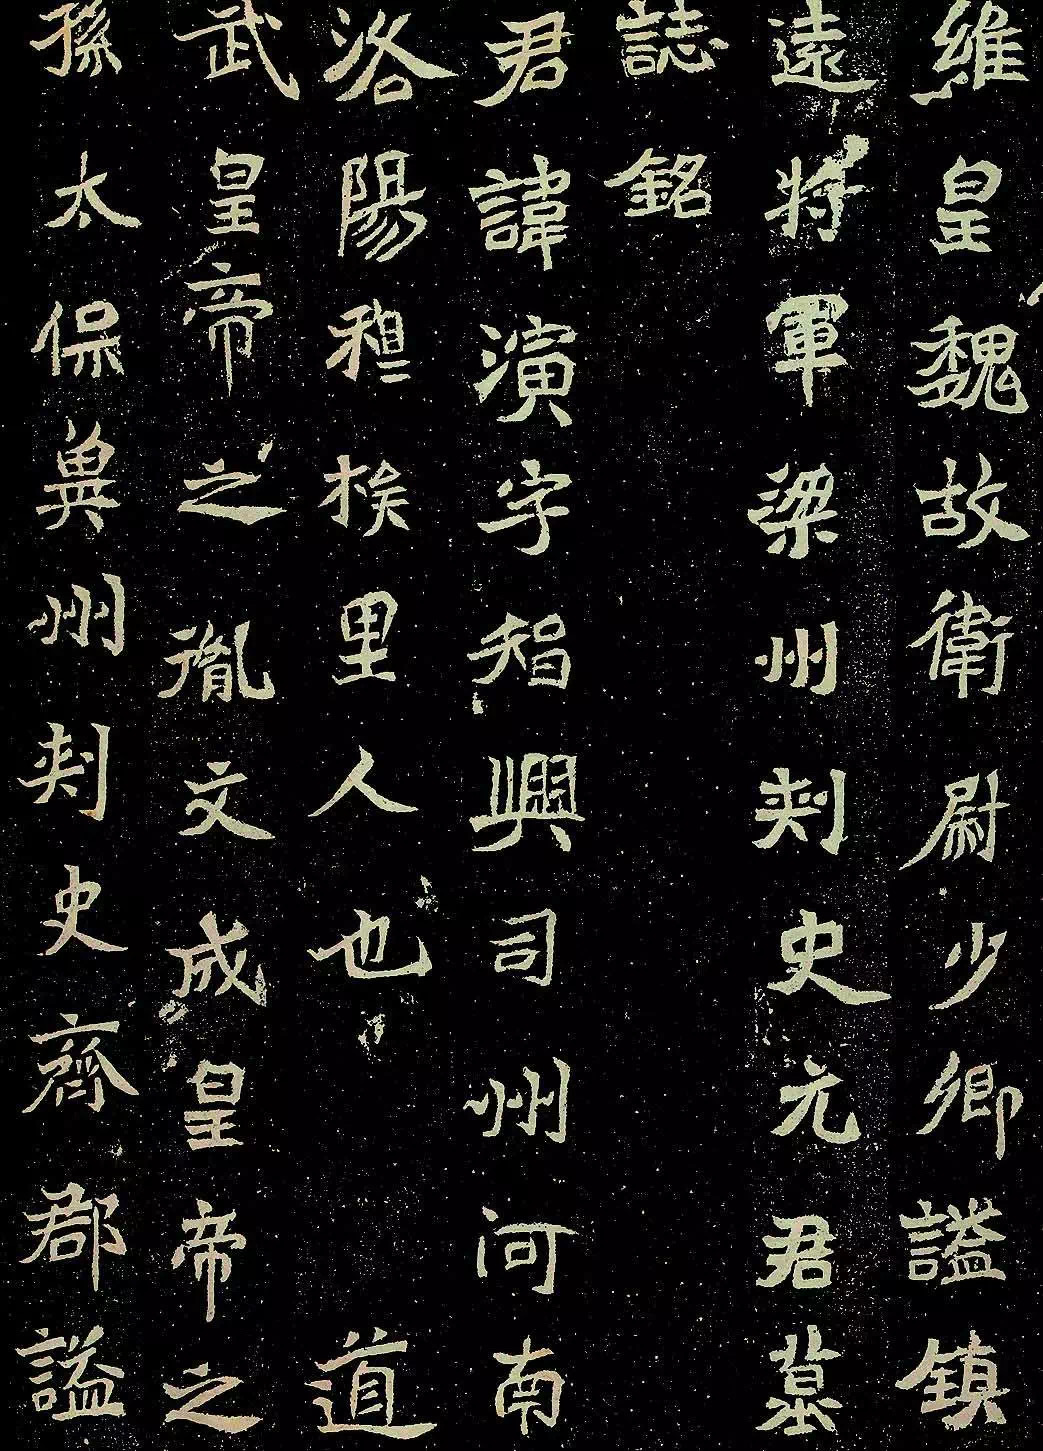 維皇魏故衛尉少卿謚鎮
遠將軍梁州刺史元君墓
誌銘
君諱演字智興司州河南
洛陽穆族里人也道
武皇帝之胤文成皇帝之
孫太保冀州刺史齊郡謚